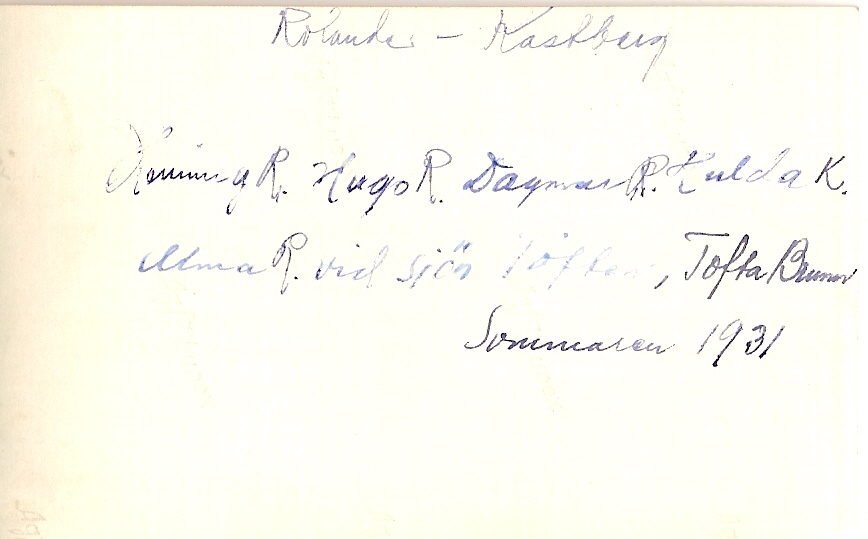 Rolander - Kastberg
Henning R. Hugo R. Dagmar R. Hulda K.
Alma R. vid sjön Toften, Tofta Brunn
Sommaren 1931